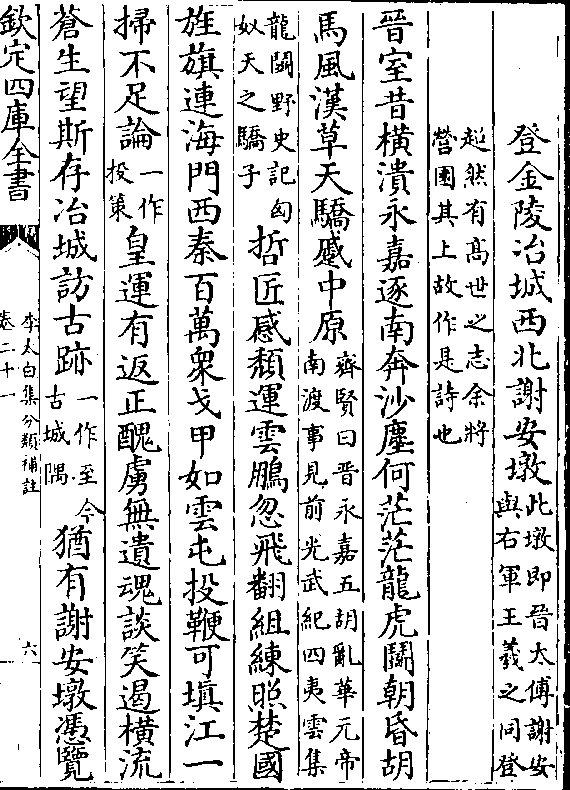 登金陵冶城西北謝安墩此墩即晉太傅謝安與右軍王羲之同登
超然有高世之志余將營園其上故作是詩也
晉室昔橫潰永嘉逐南奔沙塵何茫茫龍虎鬬朝昏胡
馬風漢草天驕蹙中原齊賢曰晉永嘉五胡亂華元帝南渡事見前光武紀四夷雲集
龍鬬野史記匈奴天之驕子哲匠感頹運雲鵬忽飛翻組練照楚國
旌旗連海門西秦百萬衆戈甲如雲屯投鞭可填江一
掃不足論一作投策皇運有返正醜虜無遺魂談笑遏橫流
蒼生望斯存冶城訪古跡一作至今古城隅猶有謝安墩憑覽
欽定四庫全書
李太白集分類補註
卷二十一
六